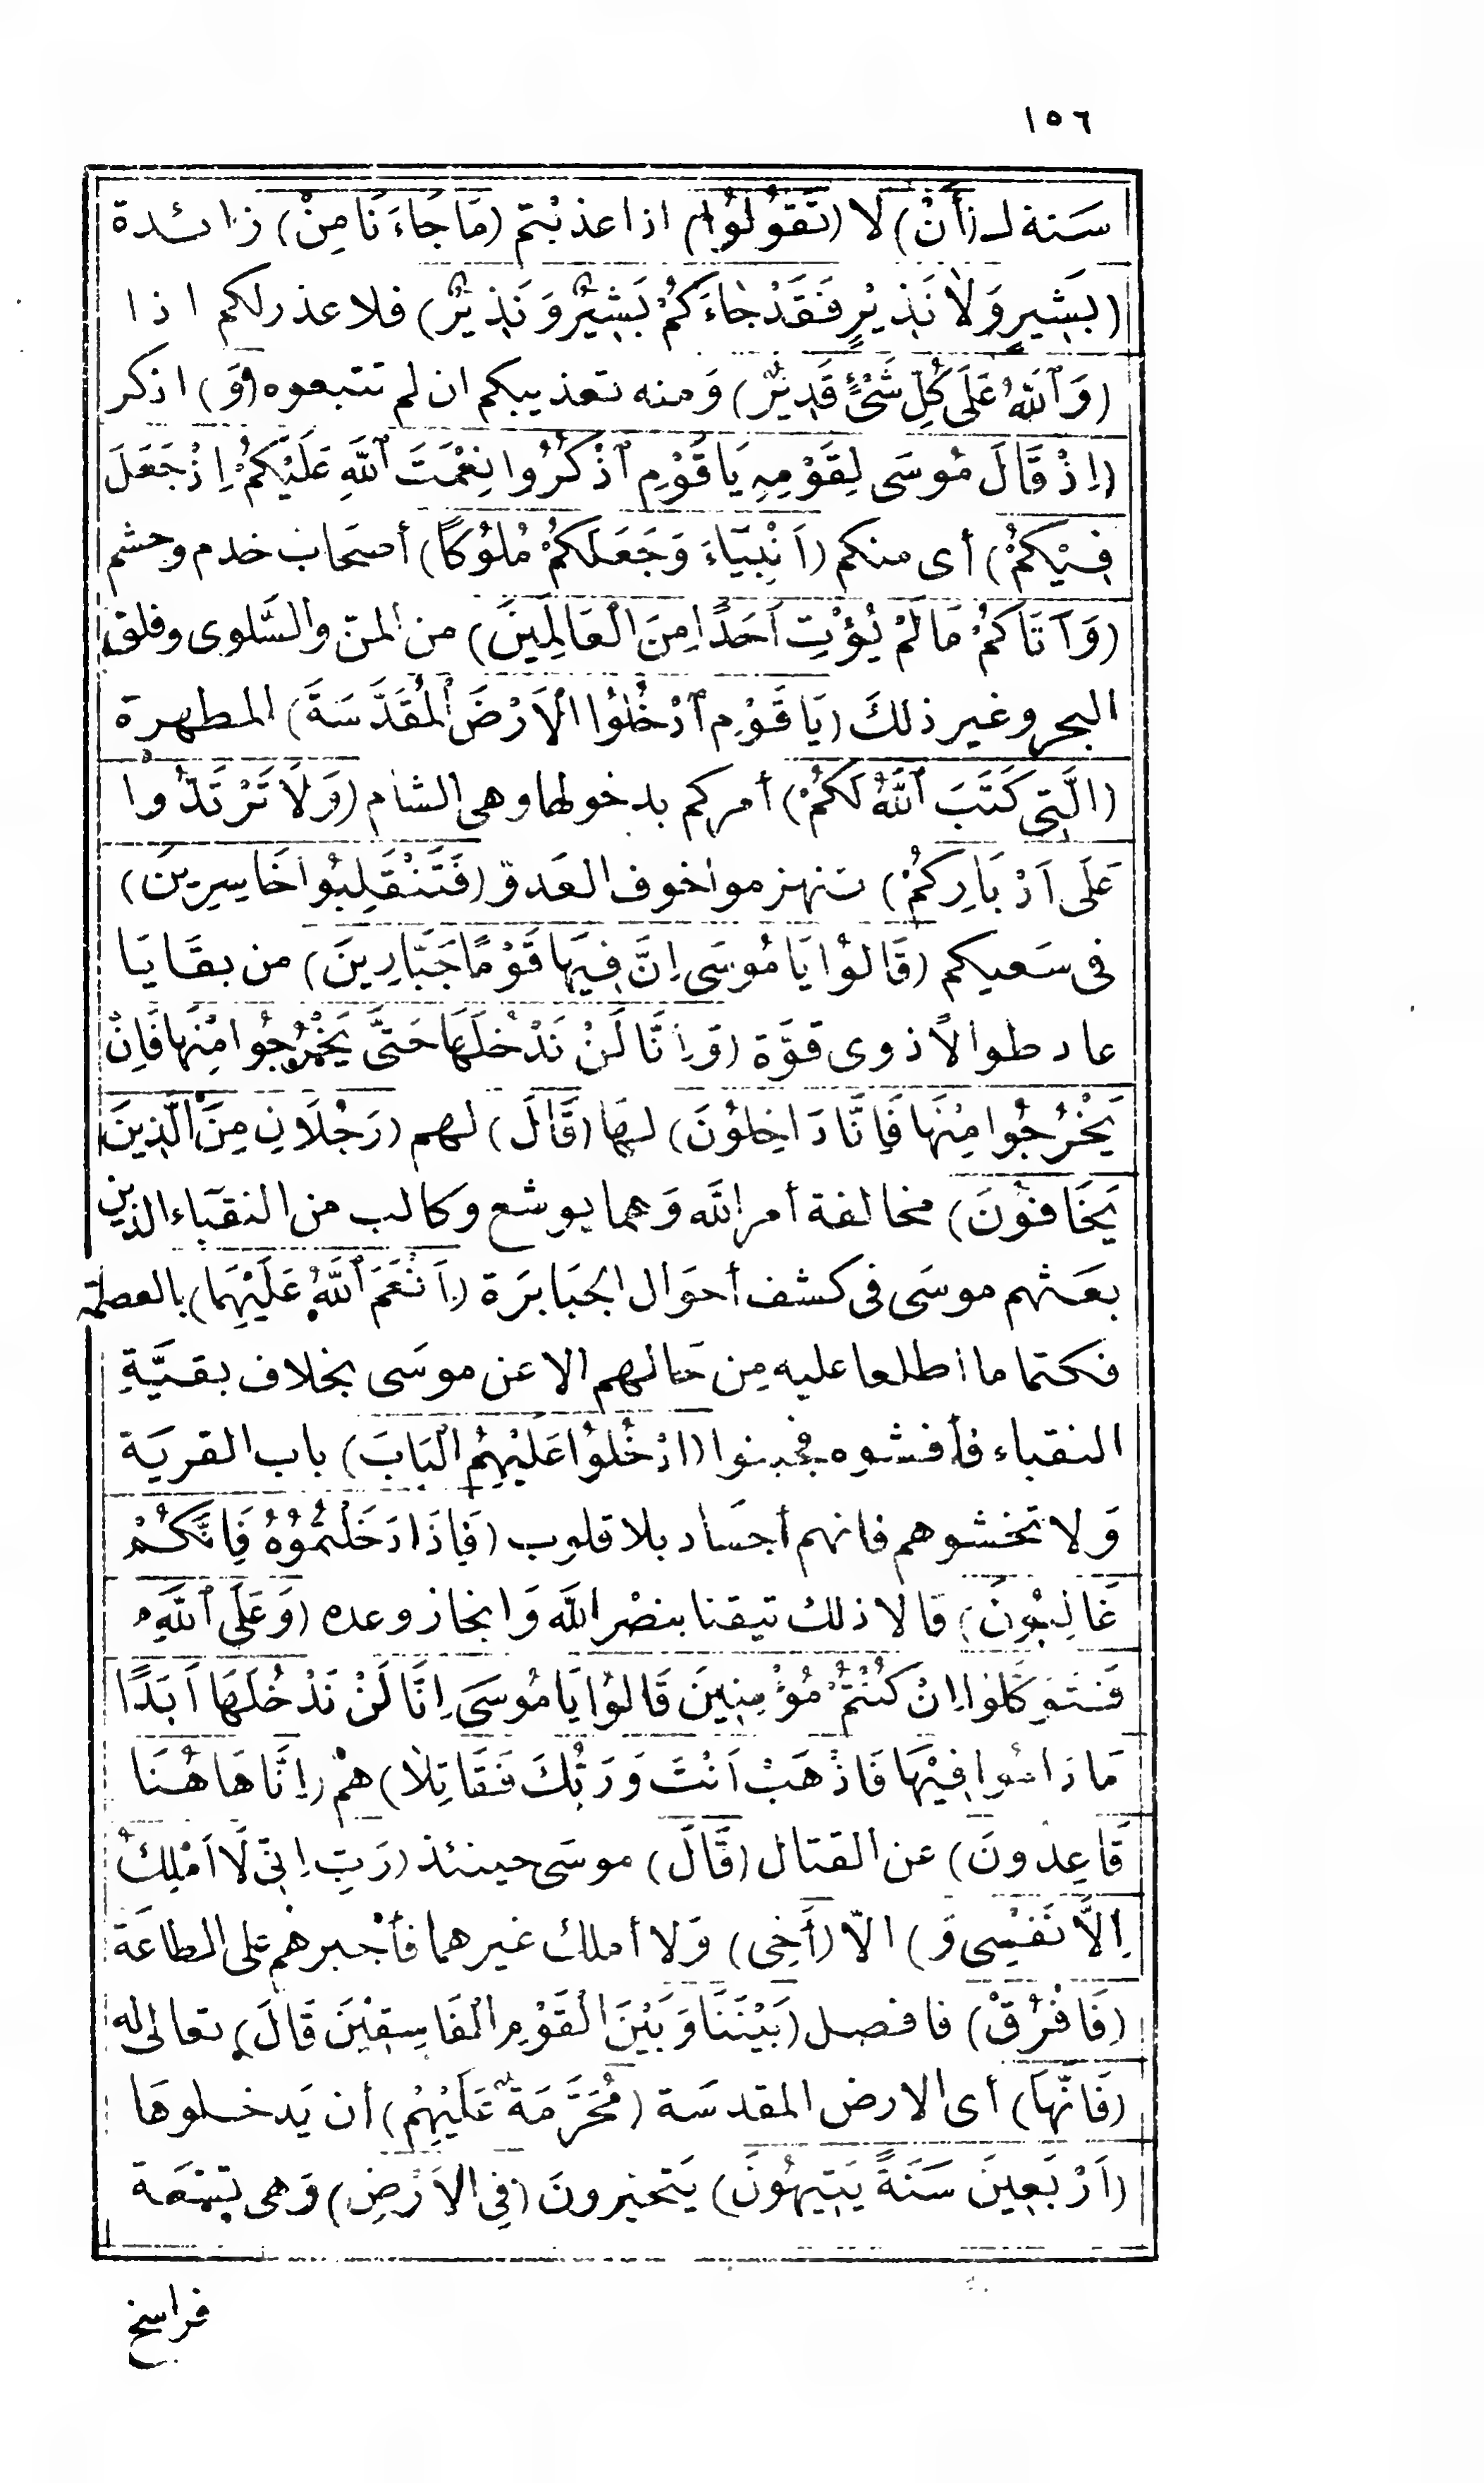 ١٥٦
سَنة لـ (أَنْ) لا (تَقُولُوا) اذا عذبْتم (مَا جَاءَنَا مِنْ) زائدة
(بَشِيرٍ وَلَا نَذِيرٍ فَقَدْ جَاءَكُمْ بَشِيرٌ وَنَذِيرٌ) فلا عذر لكم اذا
(وَٱللَّهُ عَلَى كُلِّ شَىْءٍ قَدِيرٌ) وَمنه تعذيبكم ان لم تتبعوه (وَ) اذكر
(اِذْ قَالَ مُوسَى لِقَوْمِهِ يَا قَوْمِ ٱذْكُرُوا نِعْمَتَ ٱللَّهِ عَلَيْكُمْ اِذْ جَعَلَ
فِيْكُمْ) أى منكم (اَنْبِيَاءَ وَجَعَلَكُمْ مُلُوكًا) أصحَاب خدم وحشم
(وَآتَاكُمْ مَا لَمْ يُؤْتِ اَحَدًا مِنَ الْعَالَمِينَ) من المنّ والسَّلوى وفلق
البحر وغير ذلكَ (يَا قَوْمِ ٱدْخُلُوا الْاَرْضَ الْمُقَدَّسَةَ) المطهرة
(الَّتِى كَتَبَ ٱللَّهُ لَكُمْ) أمركم بدخولها وهى الشام (وَلَا تَرْتَدُّوا
عَلَى اَدْبَارِكُمْ) تنهزموا خوف العَدوّ (فَتَنْقَلِبُوا خَاسِرِينَ)
فى سَعيكم (قَالُوا يَا مُوسَى اِنَّ فِيهَا قَوْمًا جَبَّارِينَ) من بقَايَا
عاد طوالًا ذوى قوّة (وَاِنَّا لَنْ نَدْخُلَهَا حَتَّى يَخْرُجُوا مِنْهَا فَاِنْ
يَخْرُجُوا مِنْهَا فَاِنَّا دَاخِلُونَ) لهَا (قَالَ) لهم (رَجُلَانِ مِنَ الَّذِينَ
يَخَافُونَ) مخالفة أمر الله وَهما يوشع وكالب من النقبَاء الذين
بعَثهم موسَى فى كشف أحوَال الجبَابرَة (اَنْعَمَ ٱللَّهُ عَلَيْهِمَا) بالعصمة
فكتما ما اطلعا عليه مِن حَالهم الا عن موسَى بخلاف بقيَّةِ
النقباء فأفشوه فجبنوا (ادْخُلُوا عَلَيْهِمُ الْبَابَ) باب القريَة
وَلا تخشوهم فانهم أجسَاد بلا قلوب (فَاِذَا دَخَلْتُمُوهُ فَاِنَّكُمْ
غَالِبُونَ) قالا ذلك تيقنا بنصْر الله وَانجاز وعده (وَعَلَى ٱللَّهِ
فَتَوَكَّلُوا اِنْ كُنْتُمْ مُؤْمِنِينَ قَالُوا يَا مُوسَى اِنَّا لَنْ نَدْخُلَهَا اَبَدًا
مَا دَامُوا فِيْهَا فَاذْهَبْ اَنْتَ وَرَبُّكَ فَقَاتِلَا) همْ (اِنَّا هَاهُنَا
قَاعِدُونَ) عن القتال (قَالَ) موسَى حينئذ (رَبِّ اِنِّى لَا اَمْلِكُ
اِلَّا نَفْسِى وَ) الّا (أَخِى) وَلا أملك غيرهما فأجبرهم على الطاعَة
(فَافْرُقْ) فافصل (بَيْنَنَا وَبَيْنَ الْقَوْمِ الْفَاسِقِيْنَ قَالَ) تعالى له
(فَاِنَّهَا) أى الارض المقدسَة (مُحَرَّمَةٌ عَلَيْهِمْ) أن يَدخلوهَا
(اَرْبَعِينَ سَنَةً يَتِيهُونَ) يَتحيرونَ (فِى الْاَرْضِ) وَهى تسْعَة
فراسخ